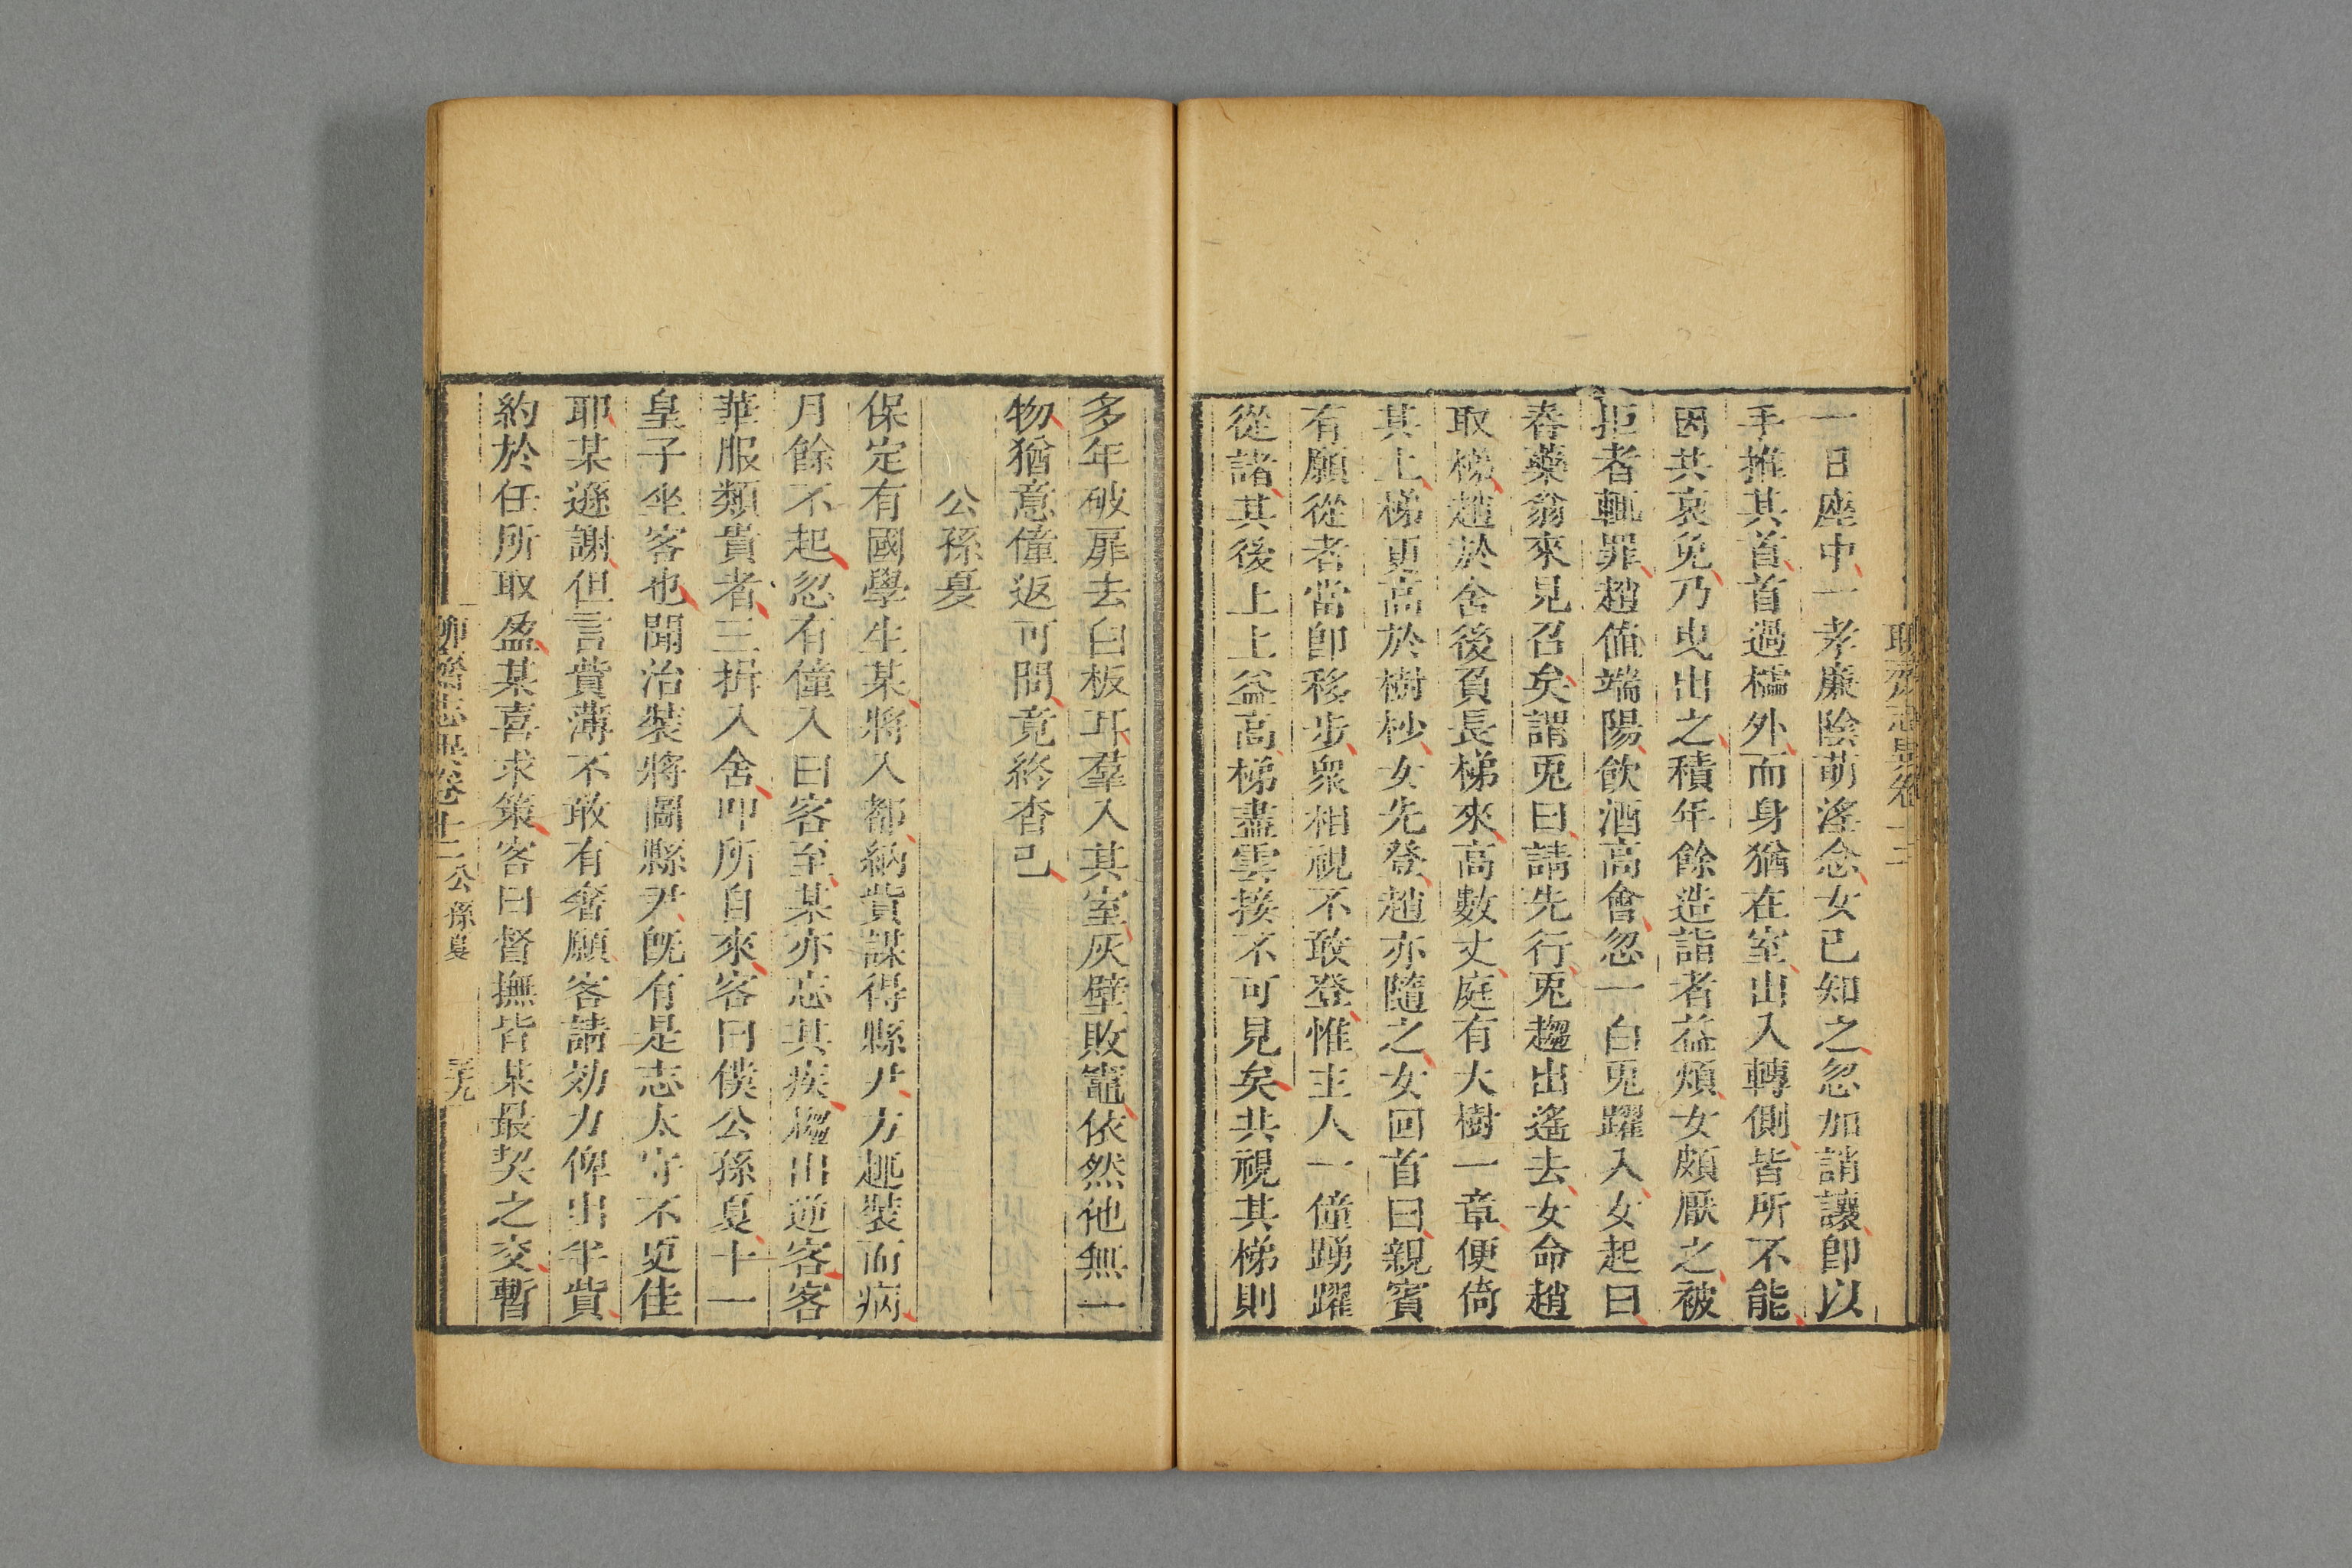 聊齋志異卷十二
一日座中一孝廉陰萌滛念女已知之忽加誚讓卽以
手推其首首過櫺外而身猶在室出入轉側皆所不能
因共哀免乃曳出之積年餘造詣者益煩女頗厭之被
拒者輒罪趙値端陽飲酒高會忽一白兎躍入女起曰
舂藥翁來見召矣謂兎曰請先行兎趨出遙去女命趙
取梯趙於舍後負長梯來高數丈庭有大樹一章便倚
其上梯更高於樹杪女先登趙亦隨之女回首曰親賓
有願從者當卽移步衆相視不敢登惟主人一僮踴躍
從諸其後上上益高梯盡雲接不可見矣共視其梯則
多年破扉去白板耳羣入其室灰壁敗竈依然他無一
物猶意僮返可問竟終杳已
公孫夏
保定有國學生某將入都納貲謀得縣尹方趣裝而病
月餘不起忽有僮入曰客至某亦忘其疾趨出逆客客
華服類貴者三揖入舍叩所自來客曰僕公孫夏十一
皇子坐客也聞治裝將圖縣尹旣有是志太守不更佳
耶某遜謝但言貲薄不敢有奢願客請効力俾出半貲
約於任所取盈某喜求策客曰督撫皆某最契之交暫
聊齋志異卷十二 公孫夏 三九